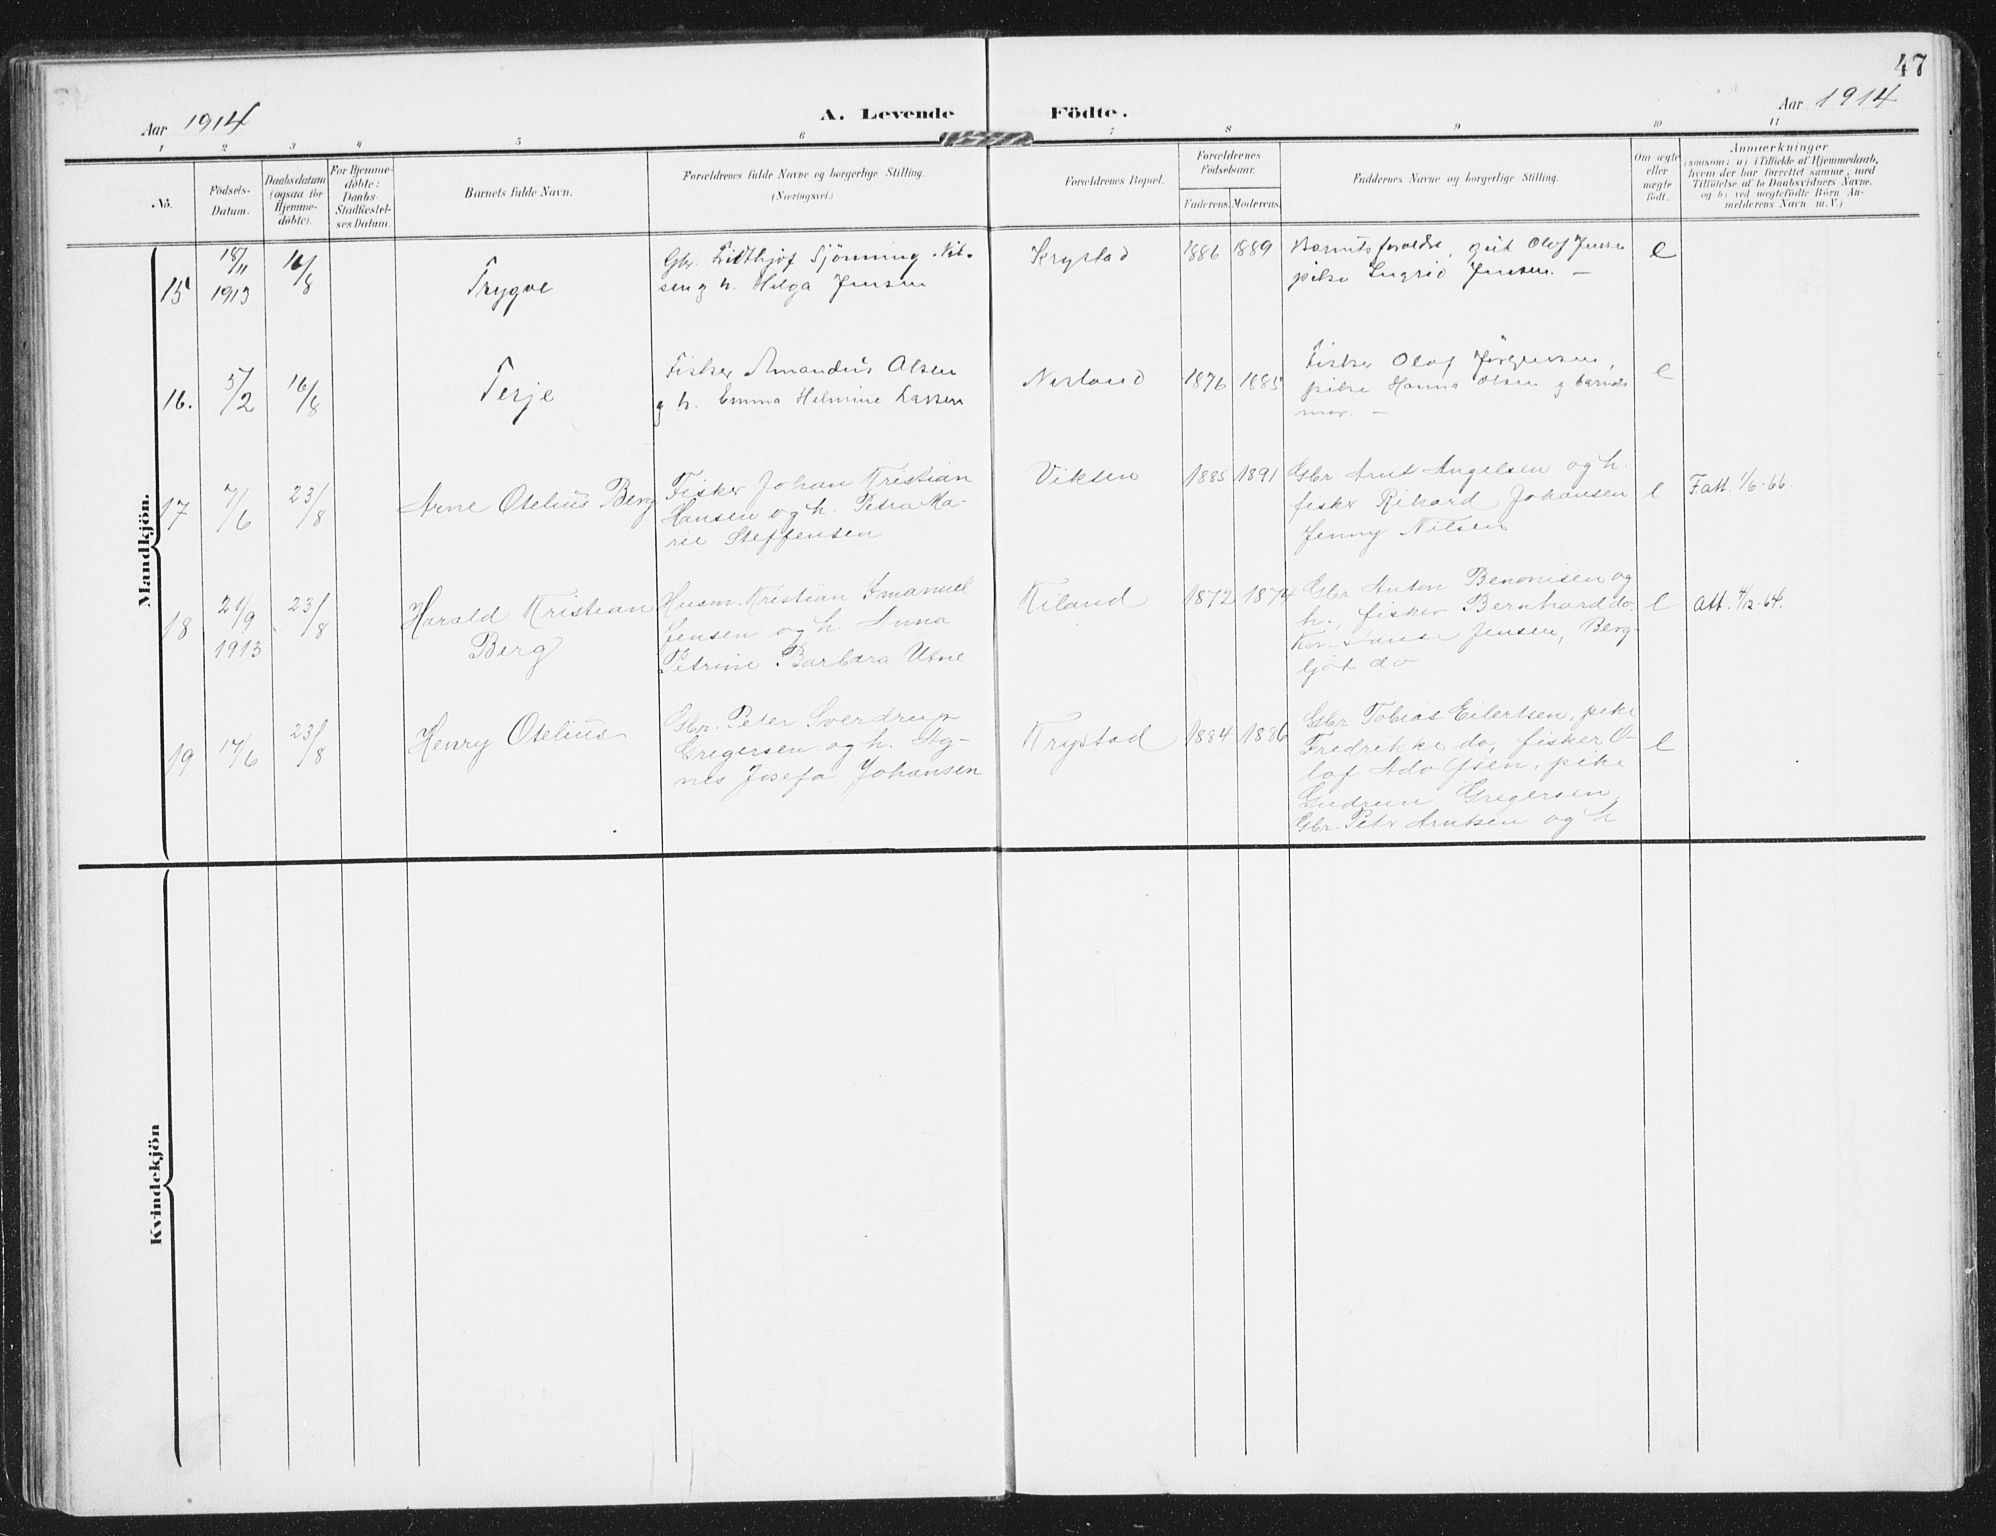 47
Aar 1914
A. Levende Födte.
Aar 1914
1 2 3 4 5 6 7 8 9 10 11
No.
Födsels-
Datum.
Daabsdatum
(ogsaa for
Hjemme-
døbte).
For Hjemme-
døbte:
Daabs-
Stadfæstel-
ses Datum.
Barnets fulde Navn.
Forældrenes fulde Navne og borgerlige Stilling.
(Næringsvei.)
Forældrenes Bopæl.
Forældrenes
Födselsaar.
Faderens. Moderens.
Faddernes Navne og borgerlige Stilling.
Om ægte
eller
uægte
født.
Anmærkninger
(saasom: a) i Tilfælde af Hjemmedaab,
hvem der har forrettet samme, med
Tilföielse af to Daabsvidners Navne,
og b) ved uægtefödte Börn An-
melderens Navn m.V.)
Mandkjön.
15
18/11
1913
16/8
Trygve
Gbr. Fridthjof Sjönning Nil-
sen og h. Helga Jensen
Krystad
1886 1889
Barnets forældre, gut Olof Jensen
pike Ingrid Jensen. —
e
16.
5/2
16/8
Terje
Fisker Amandus Olsen
og h. Emma Helmine Larsen
Nesland
1876 1885
Fisker Olof Jörgensen,
pike Hanna Olsen og barnets
mor. —
e
17
7/6
23/8
Arne Otelius Berg
Fisker Johan Kristian
Hansen og h. Petra Ma-
rie Steffensen
Viksen
1885 1891
Gbr. Arnt Angelsen og h.
fisker Rikard Johansen
Jenny Nilsen
e
Fatt. 1/6-66.
18
21/9
1913
23/8
Harald Kristian
Berg
Husm. Kristian Emanuel
Jensen og h. Anna
Petrine Barbara Utne
Kiland
1872 1874
Gbr Anton Benonisen og
h., fisker Bernhard do.
Konstanse Jensen, Berg-
ljöt do
e
Att. 4/12-64.
19
17/6
23/8
Henry Otelius
Gbr. Peter Sverdrup
Gregersen og h. Ag-
nes Josefa Johansen
Krystad
1884 1886
Gbr. Tobias Eilertsen, pike
Fredrikke do, fisker O-
laf Adolfsen, pike
Gudrun Gregersen,
Gbr. Petr Arntsen og h
e
Kvindekjön